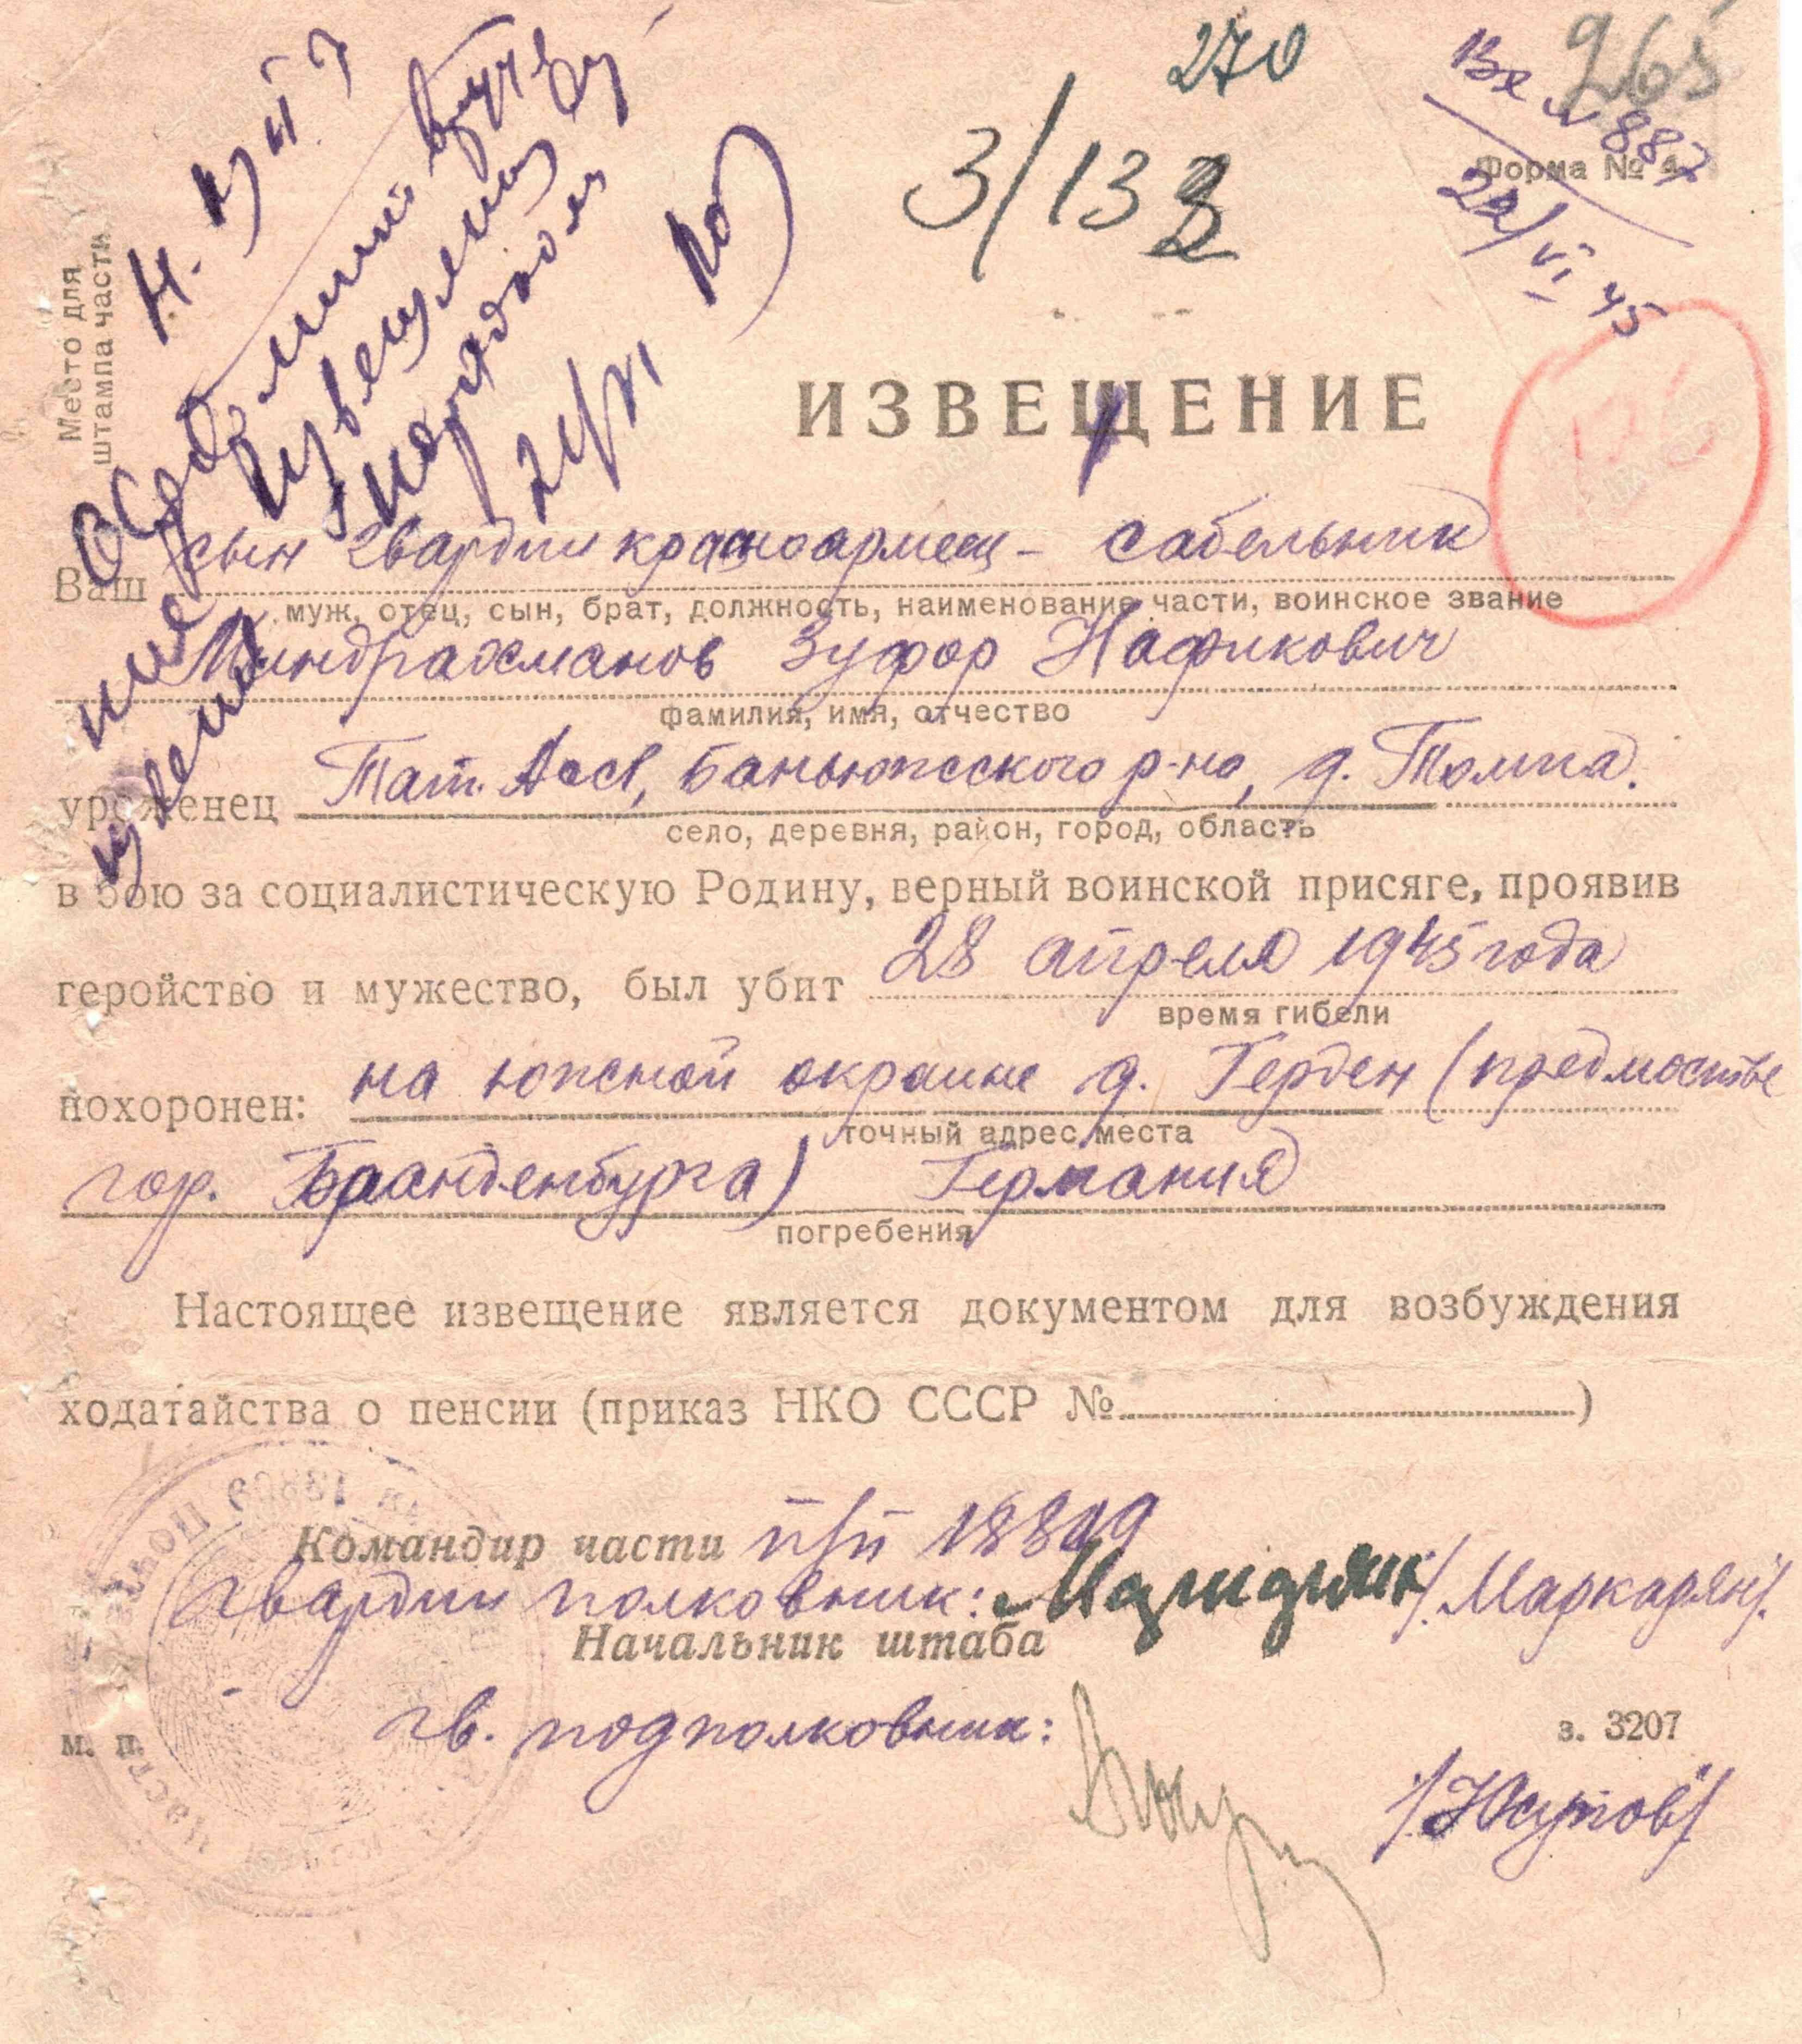 270
265
3/133
Вх № 887
Форма № 4
22/VI 45
Место для
штампа части
извещение
21/VI
ИЗВЕЩЕНИЕ
Ваш сын гвардии красноармеец – сабельник
муж, отец, сын, брат, должность, наименование части, воинское звание
Миндрахманов Зуфор Нафикович
фамилия, имя, отчество
уроженец Тат. Асс, Баньюжсского р-на, д.
село, деревня, район, город, область
в бою за социалистическую Родину, верный воинской присяге, проявив
геройство и мужество, был убит 28 апреля 1945 года
время гибели
похоронен: на южной окраине д. Герден (предмостье
точный адрес места
гор. Бранденбурга) Германия
погребения
Настоящее извещение является документом для возбуждения
ходатайства о пенсии (приказ НКО СССР №)
Командир части п/п 18809
гвардии полковник: /Маркарян/.
Начальник штаба
гв. подполковник:
м. п.
з. 3207
/Юсупов/